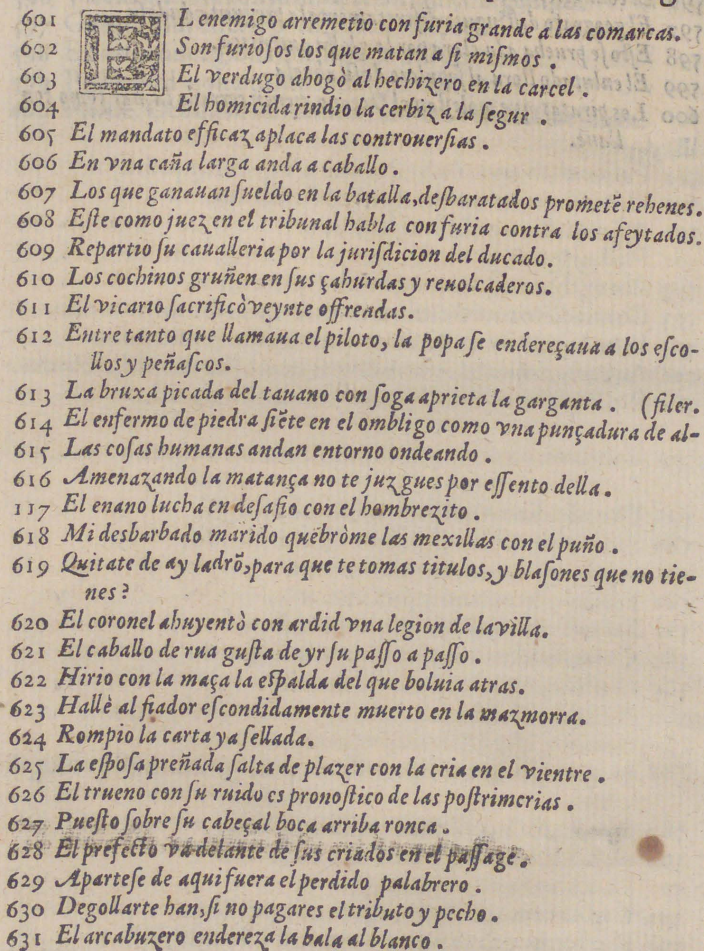 601 EL enemigo arremetio con furia grande a las comarcas.
602 Son furioſos los que matan a ſi miſmos .
603 El verdugo ahogò al hechizero en la carcel .
604 El homicida rindio la cerbiz a la ſegur .
605 El mandato efficaz aplaca las controuerſias .
606 En vna caña larga anda a caballo .
607 Los que ganauan ſueldo en la batalla,deſbaratados prometẽ rehenes.
608 Eſte como juez en el tribunal habla con furia contra los afeytados.
609 Repartio ſu caualleria por la juriſdicion del ducado.
610 Los cochinos gruñen en ſus çahurdas y reuolcaderos.
611 El vicario ſacrificò veynte offrendas.
612 Entre tanto que llamaua el piloto, la popa ſe endereçaua a los eſco-
llos y peñaſcos.
613 La bruxa picada del tauano con ſoga aprieta la garganta . (filer.
614 El enfermo de piedra ſiẽte en el ombligo como vna punçadura de al-
615 Las coſas humanas andan entorno ondeando .
616 Amenazando la matança no te juzgues por eſſento della .
117 El enano lucha en deſafio con el hombrezito .
618 Mi desbarbado marido quebròme las mexillas con el puño .
619 Quitate de ay ladrõ,para que te tomas titulos,y blaſones que no tie-
nes?
620 El coronel ahuyentò con ardid vna legion de la villa.
621 El caballo de rua guſta de yr ſu paſſo a paſſo .
622 Hirio con la maça la eſpalda del que boluia atras.
623 Hallè al fiador eſcondidamente muerto en la mazmorra.
624 Rompio la carta ya ſellada.
625 La eſpoſa preñada ſalta de plazer con la cria en el vientre .
626 El trueno con ſu ruido es pronoſtico de las poſtrimerias .
627 Pueſto ſobre ſu cabeçal boca arriba ronca .
628 El prefecto va delante de ſus criados en el paſſage .
629 Aparteſe de aqui fuera el perdido palabrero .
630 Degollarte han,ſi no pagares el tributo y pecho .
631 El arcabuzero endereza la bala al blanco .